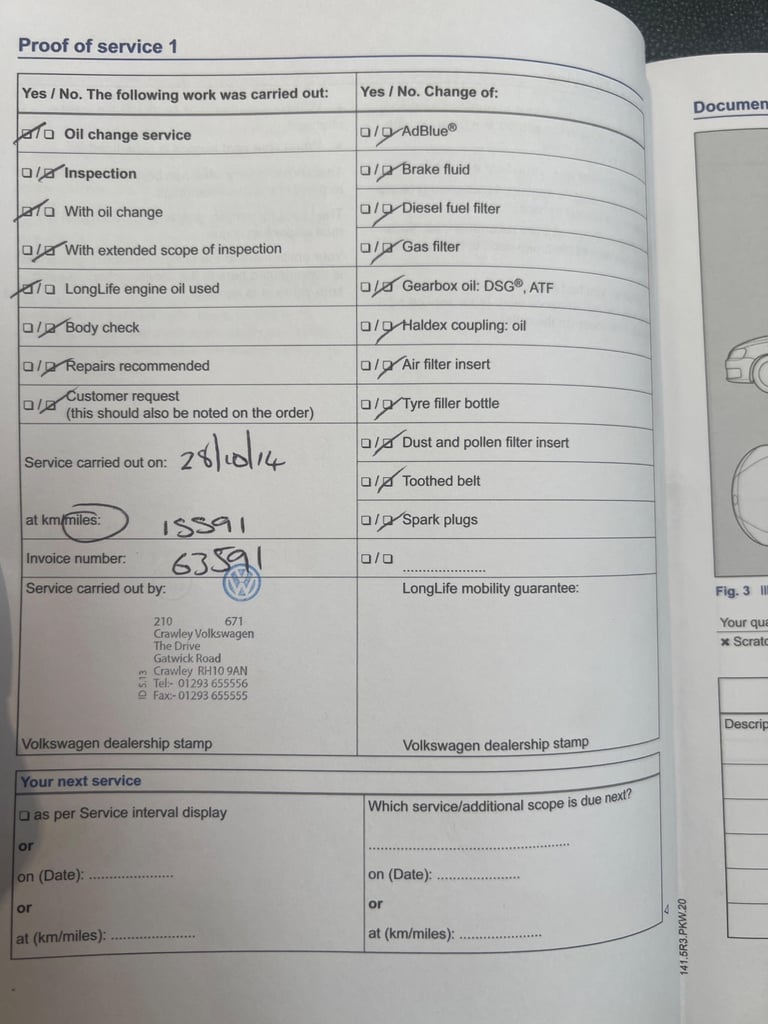 Proof of service 1
Yes / No. The following work was carried out:
☑ / ☐ Oil change service
☐ / ☑ Inspection
☑ / ☐ With oil change
☐ / ☑ With extended scope of inspection
☑ / ☐ LongLife engine oil used
☐ / ☑ Body check
☐ / ☑ Repairs recommended
☐ / ☑ Customer request
(this should also be noted on the order)
Service carried out on: 28/10/14
at km/miles: 15591
Invoice number: 63591
Service carried out by:
210 671
Crawley Volkswagen
The Drive
Gatwick Road
Crawley RH10 9AN
Tel:- 01293 655556
Fax:- 01293 655555
ID 5.13
Volkswagen dealership stamp
Yes / No. Change of:
☐ / ☑ AdBlue®
☐ / ☑ Brake fluid
☐ / ☑ Diesel fuel filter
☐ / ☑ Gas filter
☐ / ☑ Gearbox oil: DSG®, ATF
☐ / ☑ Haldex coupling: oil
☐ / ☑ Air filter insert
☐ / ☑ Tyre filler bottle
☐ / ☑ Dust and pollen filter insert
☐ / ☑ Toothed belt
☐ / ☑ Spark plugs
☐ / ☐ .....................
LongLife mobility guarantee:
Volkswagen dealership stamp
Your next service
☐ as per Service interval display
or
on (Date): .....................
or
at (km/miles): .....................
Which service/additional scope is due next?
..................................................
on (Date): .....................
or
at (km/miles): .....................
141.5R3.PKW.20
Documen
Fig. 3 Ill
Your qua
× Scratc
Descrip